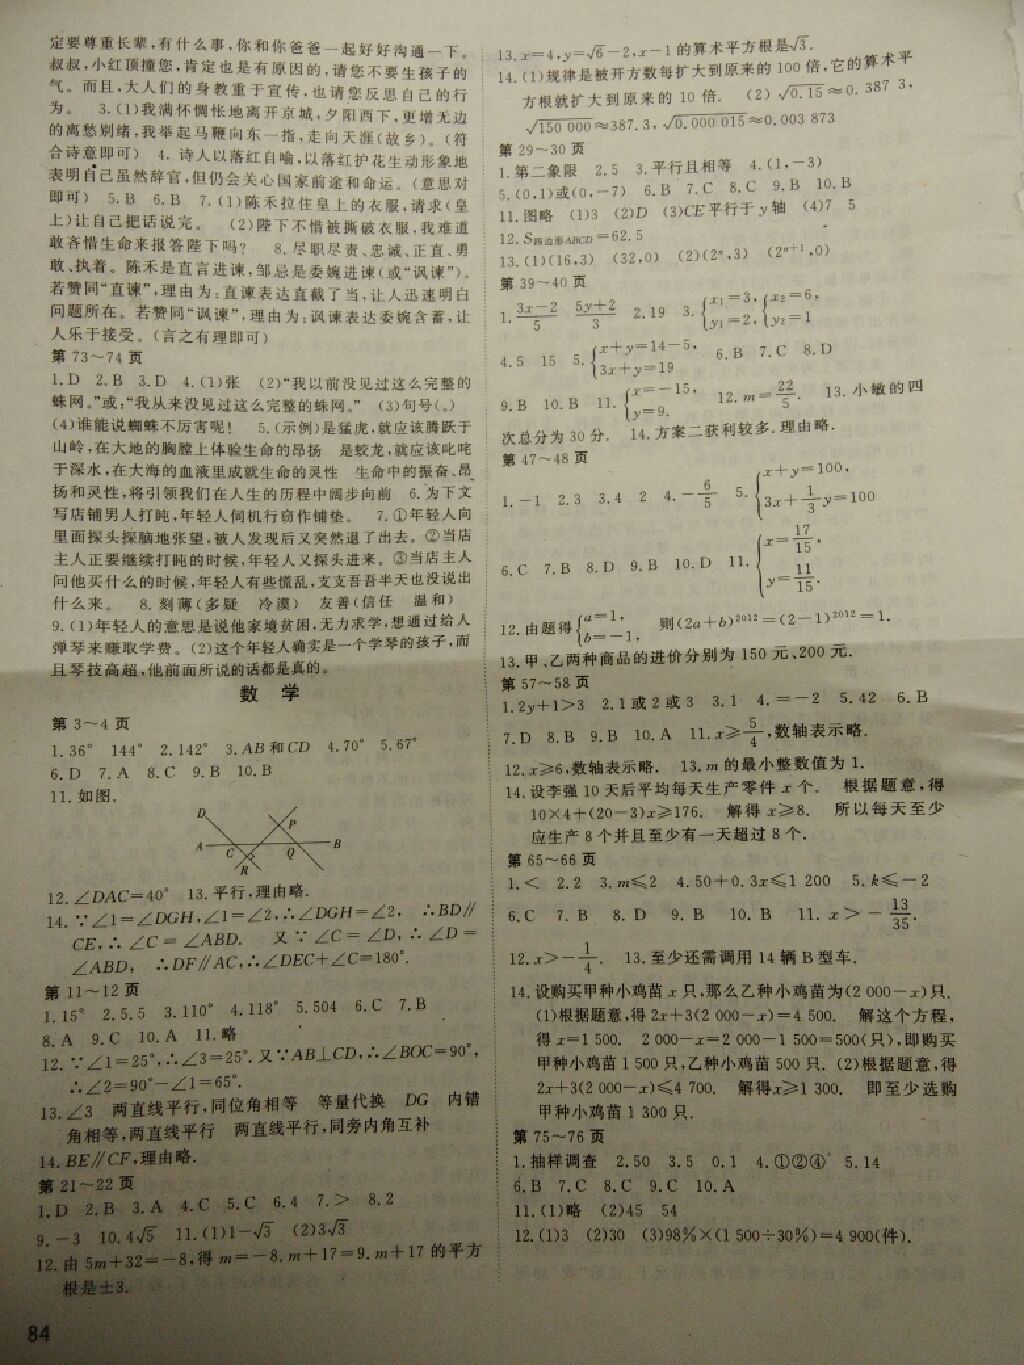 定要尊重长辈,有什么事,你和你爸爸一起好好沟通一下。
叔叔,小红顶撞您,肯定也是有原因的,请您不要生孩子的
气。而且,大人们的身教重于宣传,也请您反思自己的行
为。 3.(1)我满怀惆怅地离开京城,夕阳西下,更增无边
的离愁别绪,我举起马鞭向东一指,走向天涯(故乡)。(符
合诗意即可) 4. 诗人以落红自喻,以落红护花生动形象地
表明自己虽然辞官,但仍会关心国家前途和命运。(意思对
即可) 5.B 6.B 7.(1)陈禾拉住皇上的衣服,请求(皇
上)让自己把话说完。 (2)陛下不惜被撕破衣服,我难道
敢吝惜生命来报答陛下吗? 8.尽职尽责、忠诚、正直、勇
敢、执着。陈禾是直言进谏,邹忌是委婉进谏(或“讽谏”)。
若赞同“直谏”,理由为:直谏表达直截了当,让人迅速明白
问题所在。若赞同“讽谏”,理由为:讽谏表达委婉含蓄,让
人乐于接受。(言之有理即可)
第 73~74 页
1.D 2.B 3.D 4.(1)张 (2)“我以前没见过这么完整的
蛛网。”或:“我从来没见过这么完整的蛛网。” (3)句号(。)
(4)谁能说蜘蛛不厉害呢! 5.(示例)是猛虎,就应该腾跃于
山岭,在大地的胸膛上体验生命的昂扬 是蛟龙,就应该叱咤
于深水,在大海的血液里成就生命的灵性 生命中的振奋、昂
扬和灵性,将引领我们在人生的历程中阔步向前 6.为下文
写店铺男人打盹,年轻人伺机行窃作铺垫。 7.①年轻人向
里面探头探脑地张望,被人发现后又突然退了出去。②当店
主人正要继续打盹的时候,年轻人又探头进来。③当店主人
问他买什么的时候,年轻人有些慌乱,支支吾吾半天也没说出
什么来。 8.刻薄(多疑 冷漠) 友善(信任 温和)
9.(1)年轻人的意思是说他家境贫困,无力求学,想通过给人
弹琴来赚取学费。(2)这个年轻人确实是一个学琴的孩子,而
且琴技高超,他前面所说的话都是真的。
数 学
第 3~4 页
1.36° 144° 2.142° 3.AB 和 CD 4.70° 5.67°
6.D 7.A 8.C 9.B 10.B
11.如图。
D P
A C Q B
R
12.∠DAC=40° 13.平行,理由略.
14.∵∠1=∠DGH,∠1=∠2,∴∠DGH=∠2, ∴BD∥
CE,∴∠C=∠ABD. 又∵∠C=∠D,∴∠D=
∠ABD, ∴DF∥AC,∴∠DEC+∠C=180°.
第 11~12 页
1.15° 2.5.5 3.110° 4.118° 5.504 6.C 7.B
8.A 9.C 10.A 11.略
12.∵∠1=25°,∴∠3=25°.又∵AB⊥CD,∴∠BOC=90°,
∴∠2=90°-∠1=65°.
13.∠3 两直线平行,同位角相等 等量代换 DG 内错
角相等,两直线平行 两直线平行,同旁内角互补
14.BE∥CF,理由略.
第 21~22 页
1.D 2.B 3.A 4.C 5.C 6.4 7.> 8.2
9.-3 10.4√5 11.(1)1-√3 (2)3√3
12.由 5m+32=-8,得 m=-8.m+17=9.m+17 的平方
根是±3.
84
13.x=4,y=√6-2,x-1 的算术平方根是√3.
14.(1)规律是被开方数每扩大到原来的 100 倍,它的算术平
方根就扩大到原来的 10 倍. (2) √0.15≈0.387 3,
√150 000≈387.3,√0.000 015≈0.003 873
第 29~30 页
1.第二象限 2.5 3.平行且相等 4.(1,-3)
5.(0,1)或(0,-7) 6.B 7.C 8.C 9.B 10.B
11.图略 (1)3 (2)D (3)CE平行于 y 轴 (4)7 5
12.S四边形ABCD=62.5
13.(1)(16,3) (32,0) (2)(2ⁿ,3) (2ⁿ⁺¹,0)
第 39~40 页
1. (3x-2)/5 (5y+2)/3 2.19 3. {x₁=3, y₁=2, {x₂=6, y₂=1
4.5 15 5. {x+y=14-5, 3x+y=19 6.B 7.C 8.D
9.B 10.B 11. {x=-15, y=9. 12.m=22/5. 13.小敏的四
次总分为 30 分. 14.方案二获利较多.理由略.
第 47~48 页
1.-1 2.3 3.4 2 4.-6/5 5. {x+y=100, 3x+1/3y=100
6.C 7.B 8.D 9.B 10.D 11. {x=17/15, y=11/15.
12.由题得{a=1, b=-1, 则(2a+b)²⁰¹²=(2-1)²⁰¹²=1.
13.甲、乙两种商品的进价分别为 150 元、200 元.
第 57~58 页
1.2y+1>3 2.1 或 2 或 3 3.1 4.=-2 5.42 6.B
7.D 8.B 9.B 10.A 11.x≥5/4,数轴表示略.
12.x≥6,数轴表示略. 13.m 的最小整数值为 1.
14.设李强 10 天后平均每天生产零件 x 个. 根据题意,得
10×4+(20-3)x≥176. 解得 x≥8. 所以每天至少
应生产 8 个并且至少有一天超过 8 个.
第 65~66 页
1.< 2.2 3.m≤2 4.50+0.3x≤1 200 5.k≤-2
6.C 7.B 8.D 9.B 10.B 11.x>-13/35.
12.x>-1/4. 13.至少还需调用 14 辆 B 型车.
14.设购买甲种小鸡苗 x 只,那么乙种小鸡苗为(2 000-x)只.
(1)根据题意,得 2x+3(2 000-x)=4 500. 解这个方程,
得 x=1 500. 2 000-x=2 000-1 500=500(只),即购买
甲种小鸡苗 1 500 只,乙种小鸡苗 500 只. (2)根据题意,得
2x+3(2 000-x)≤4 700. 解得x≥1 300. 即至少选购
甲种小鸡苗 1 300 只.
第 75~76 页
1.抽样调查 2.50 3.5 0.1 4.①②④ 5.14
6.B 7.C 8.C 9.C 10.A
11.(1)略 (2)45 54
12.(1)3 (2)30 (3)98%×(1 500÷30%)=4 900(件).